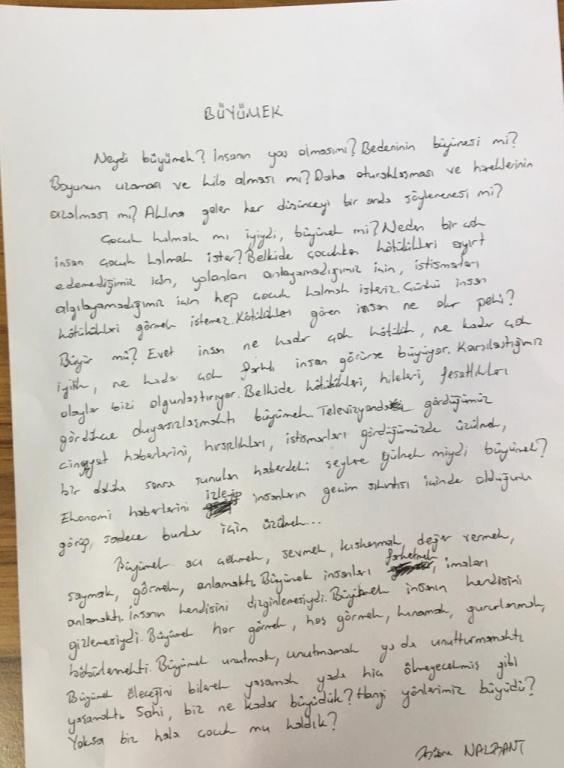 BÜYÜMEK
Neydi büyümek? İnsanın yaş alması mı? Bedeninin büyümesi mi?
Boyunun uzaması ve kilo alması mı? Daha oturaklaşması ve hareklerinin
azalması mı? Aklına gelen her düşünceyi bir anda söylenemesi mi?
Çocuk kalmak mı iyiydi, büyümek mi? Neden bir çok
insan çocuk kalmak ister? Belkide çocukken kötülükleri ayırt
edemediğimiz için, yalanları anlayamadığımız için, istismarları
algılayamadığımız için hep çocuk kalmak isteriz. Çünkü insan
kötülükleri görmek istemez. Kötülükleri gören insan ne olur peki?
Büyür mü? Evet insan ne kadar çok kötülük, ne kadar çok
iyilik, ne kadar çok farklı insan görürse büyüyor. Karşılaştığımız
olaylar bizi olgunlaştırıyor. Belkide kötülükleri, hileleri, fesatlıkları
gördükçe duyarsızlaşmaktı büyümek. Televizyonda gördüğümüz
cinayet haberlerini, hırsızlıkları, istismarları gördüğümüzde üzülmek,
bir dakika sonra sunulan haberdeki şeylere gülmek miydi büyümek?
Ekonomi haberlerini izleyip insanların geçim sıkıntısı içinde olduğunu
görüp, sadece bunlar için üzülmek...
Büyümek acı çekmek, sevmek, kıskanmak, değer vermek,
saymak, görmek, anlamaktı. Büyümek insanları farketmek, imaları
anlamaktı. İnsanın kendisini dizginlemesiydi. Büyümek insanın kendisini
gizlemesiydi. Büyümek hor görmek, hoş görmek, kınamak, gururlanmak,
böbürlenmekti. Büyümek unutmak, unutmamak ya da unutturmamaktı
Büyümek öleceğini bilerek yaşamak yada hiç ölmeyecekmiş gibi
yaşamaktı. Sahi, biz ne kadar büyüdük? Hangi yönlerimiz büyüdü?
Yoksa biz hala çocuk mu kaldık?
NALBANT